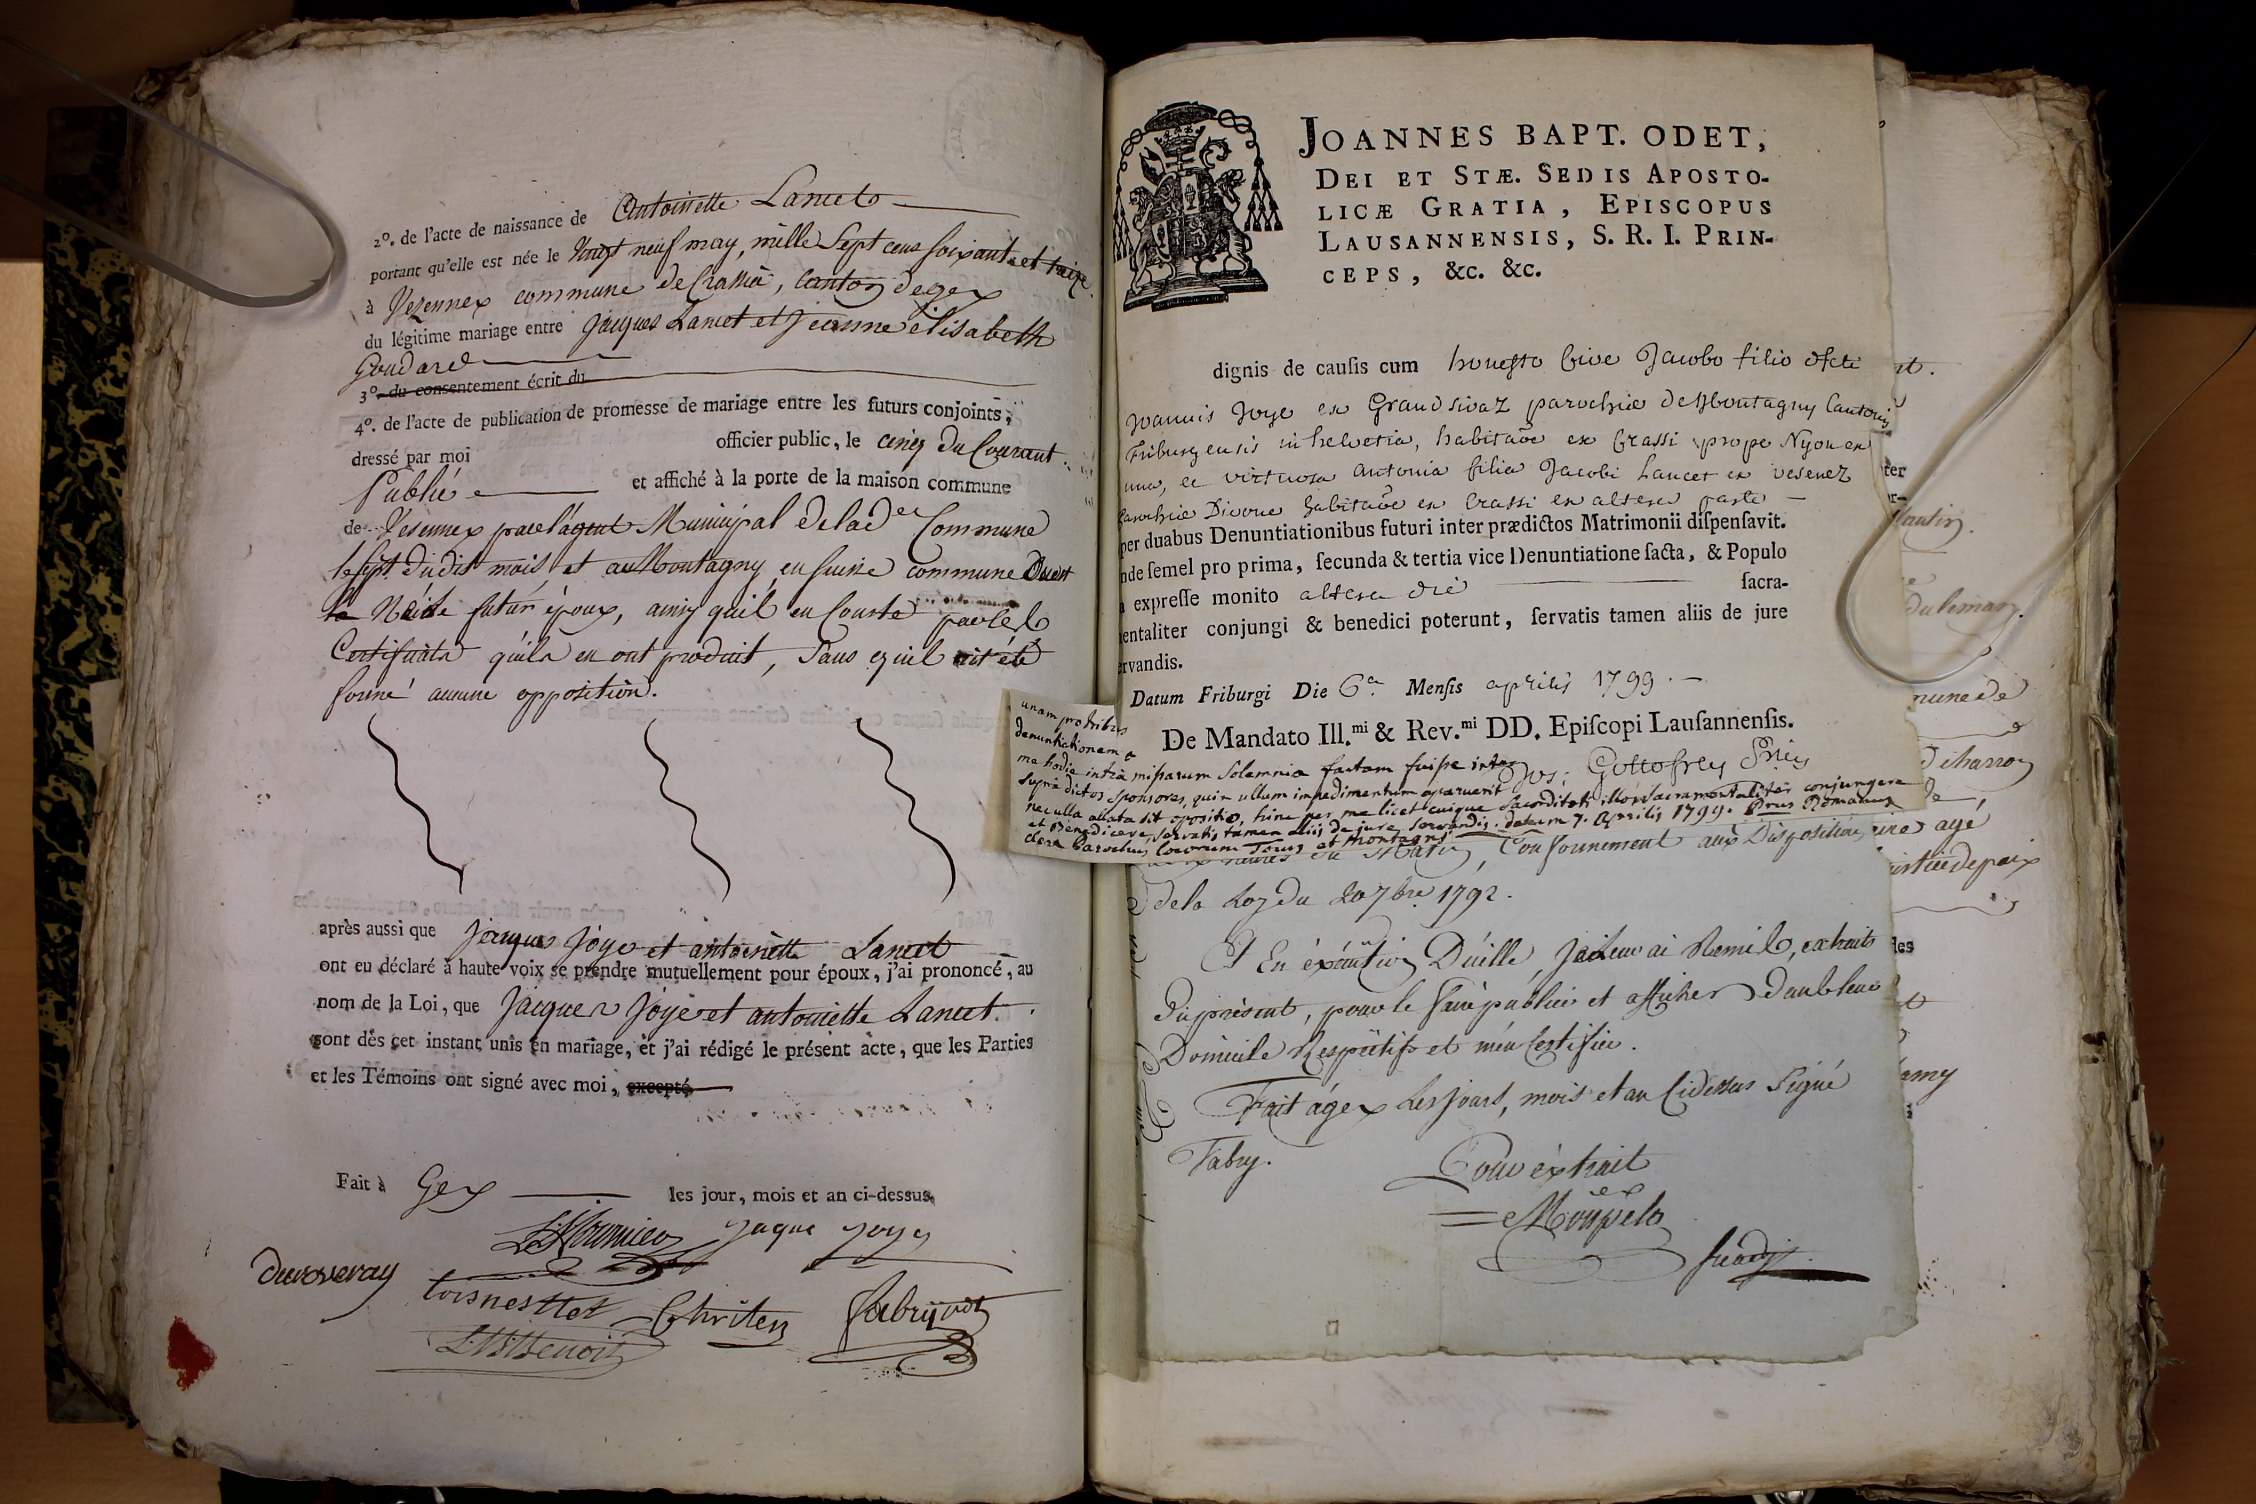 2º. de l'acte de naissance de Antoinette Lancet
portant qu'elle est née le Vingt neuf may, mille Sept cens soixante et treize
à Vezennex commune de Crassia, Canton de gex
du légitime mariage entre jacques Lancet et jeanne élisabeth
Goudard
3º. du consentement écrit du
4º. de l'acte de publication de promesse de mariage entre les futurs conjoints,
dressé par moi officier public, le cinq du Courant
Publié et affiché à la porte de la maison commune
de Vesennex par l'ágent Municipal de la de Commune
le Sept dudit mois, et au Montagny en suisse commune
futur époux, ainsy quil en Conste par les
Certificats quils en ont produit, Sans qu'il ait été
formé aucune opposition.
après aussi que Jacques Joye et antoinette Lancet
ont eu déclaré à haute voix se prendre mutuellement pour époux, j'ai prononcé, au
nom de la Loi, que Jacques Joye et antoinette Lancet
sont dès cet instant unis en mariage, et j'ai rédigé le présent acte, que les Parties
et les Témoins ont signé avec moi, excepté
Fait à Gex les jour, mois et an ci-dessus.
jaque joye
duroveray
Christen
JOANNES BAPT. ODET,
DEI ET STÆ. SEDIS APOSTO-
LICÆ GRATIA, EPISCOPUS
LAUSANNENSIS, S. R. I. PRIN-
CEPS, &c. &c.
dignis de causis cum honesto Cive Jacobo filio
Joannis Joye ex Grandsivaz parochiæ de Montagny Cantonis
Friburgensis in helvetia, habitante ex Crassi prope Nyon ex
una, et virtuosa Antonia filia Jacobi Lancet ex vesenez
Parochiæ Divone habitante ex Crassi ex altera parte
per duabus Denuntiationibus futuri inter prædictos Matrimonii dispensavit.
nde semel pro prima, secunda & tertia vice Denuntiatione facta, & Populo
expresse monito altera die sacra-
entaliter conjungi & benedici poterunt, servatis tamen aliis de jure
ervandis.
Datum Friburgi Die 6a. Mensis aprilis 1799.
De Mandato Ill.mi & Rev.mi DD. Episcopi Lausannensis.
Jos: Gottofrey
unam pro tribus
denuntiationem a
me hodie intra missarum Solemnia factam fuisse inter
supra dictos sponsores, quin ullum impedimentum aparuerit
nec ulla allata sit opositio, hinc per me licet cuique sacerdoti illos sacramentaliter conjungere
et Benedicere, servatis tamen aliis de jure servandis. datum 7. Aprilis 1799.
Parochus locorum Tours et Montagni
heures du Matin, Conformément aux Dispositions
de la Loy du 20 7bre 1792.
En éxécution D'icelle, j'ai Remis, extraits
du présent, pour le faire publier et afficher dans leur
Domicile Respectifs et m'en Certifier.
Fait á gex Les jours, mois et an Cidessus Signé
Fabry.
Pour éxtrait